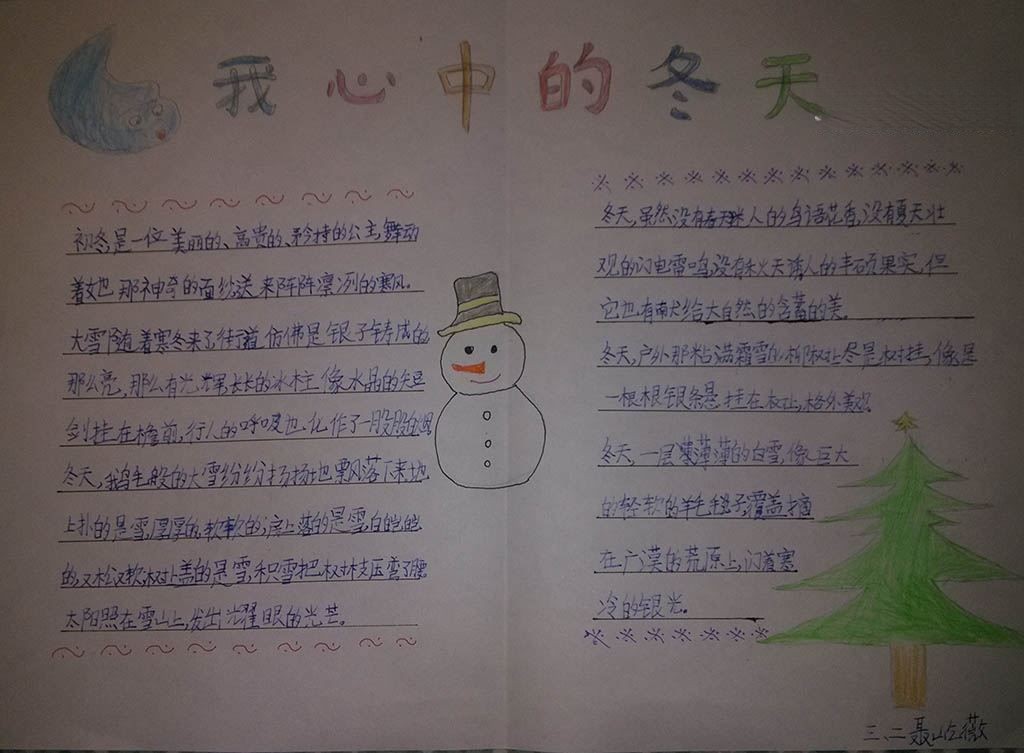 我心中的冬天
初冬,是一位美丽的、高贵的、矜持的公主,舞动
着她那神奇的面纱送来阵阵凛冽的寒风。
大雪随着寒冬来了街道仿佛是银子铸成的
那么亮,那么有光辉长长的冰柱像水晶的短
剑挂在檐前,行人的呼吸也化作了一股股白烟
冬天,鹅毛般的大雪纷纷扬扬地飘风落下来地
上扑的是雪,厚厚的,软软的;房上落的是雪,白皑皑
的,又松又软;树上盖的是雪,积雪把树枝压弯了腰
太阳照在雪山上,发出耀眼的光芒。
冬天,虽然没有春天迷人的鸟语花香,没有夏天壮
观的闪电雷鸣,没有秋天诱人的丰硕果实,但
它也有献给大自然的含蓄的美。
冬天,户外那粘满霜雪的柳树上尽是树挂,像是
一根根银条悬挂在树上,格外美观
冬天,一层薄薄薄的白雪,像巨大
的轻软的羊毛毯子覆盖摘
在广漠的荒原上,闪着寒
冷的银光。
三、二聂屹薇